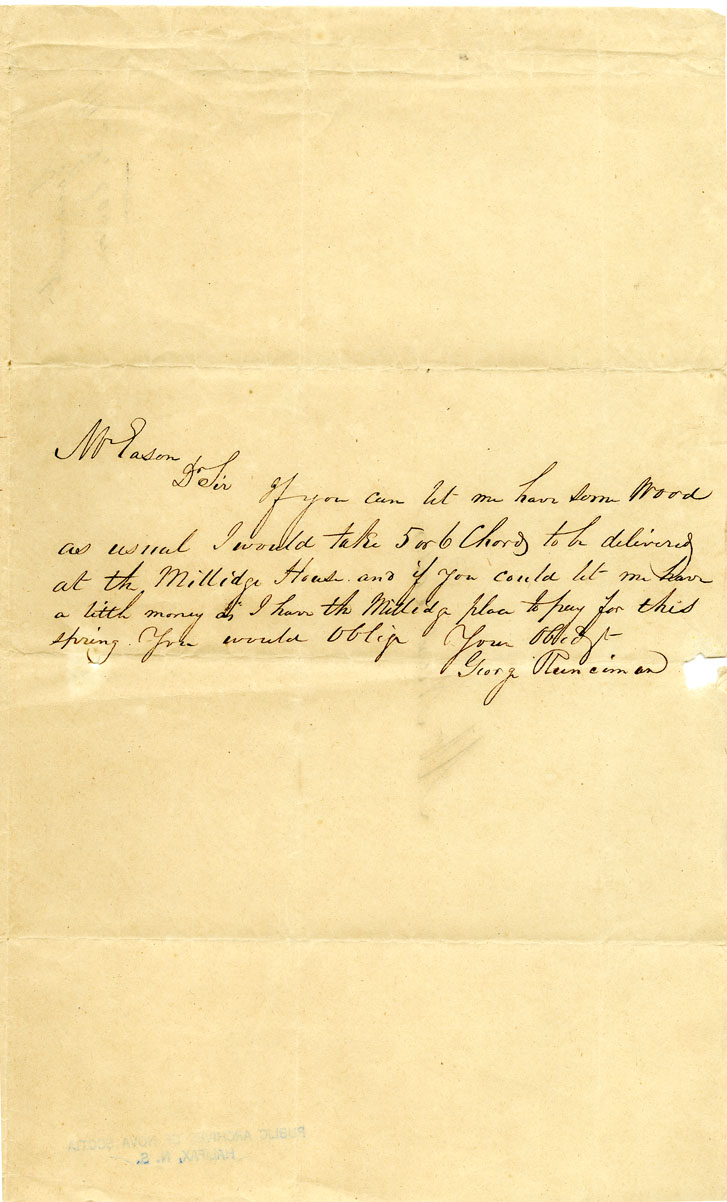 Mr Eason
Dr Sir If you can let me have some Wood
as usual I would take 5 or 6 Chords to be delivered
at the Millidge House. and if you could let me have
a little money as I have the Millidge place to pay for this
spring. You would Oblige Your Obedt
George Runciman
PUBLIC ARCHIVES OF NOVA SCOTIA
HALIFAX, N. S.